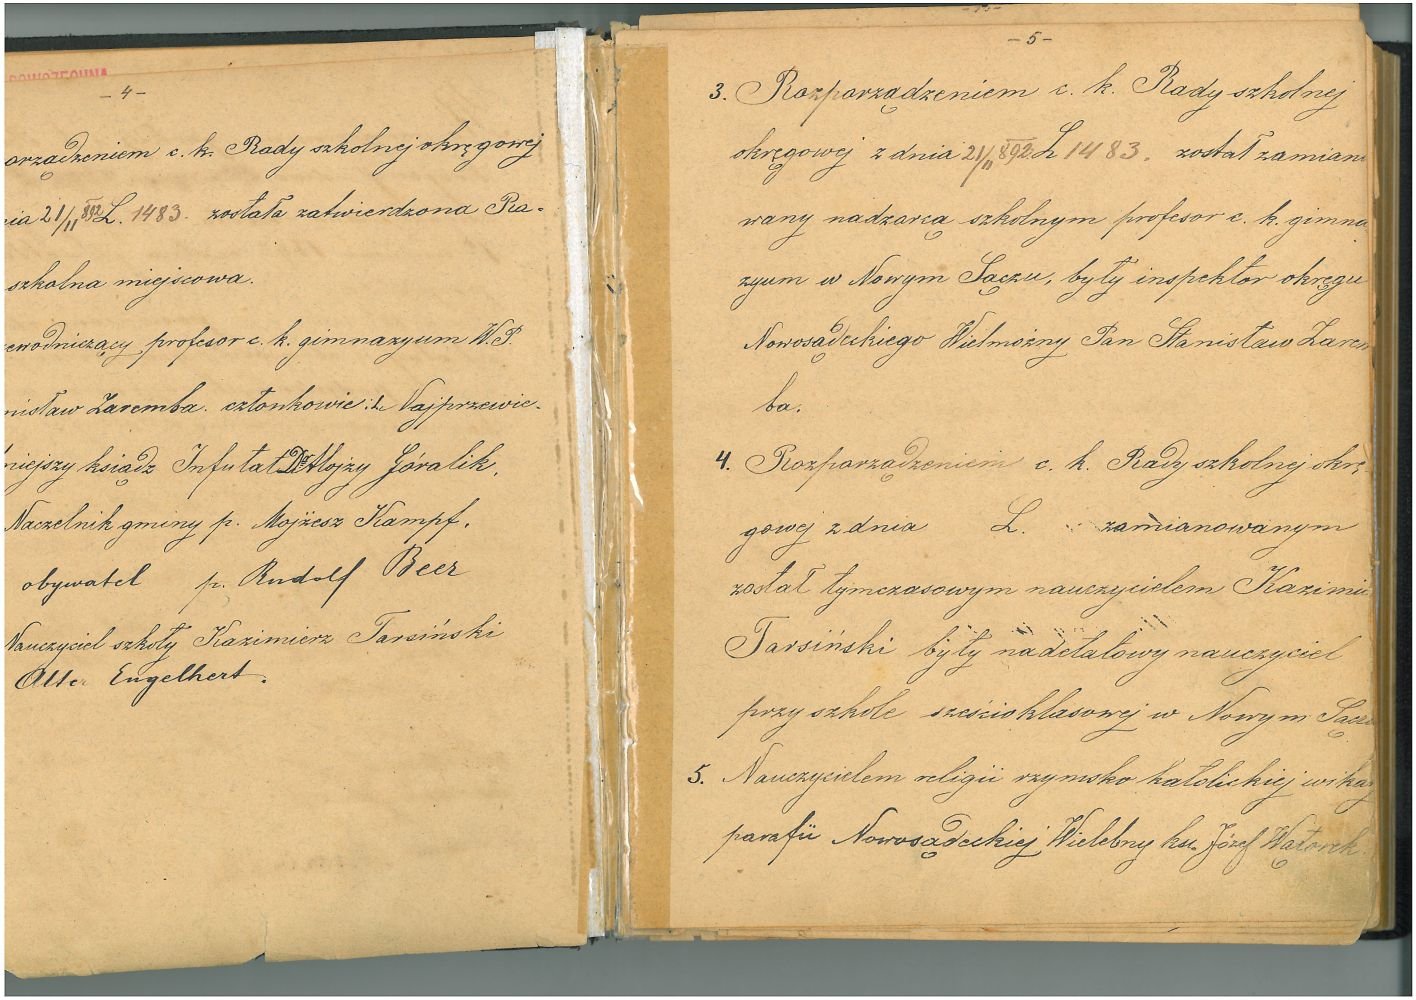 - 4 -
orządzeniem c. k. Rady szkolnej okręgowej
nia 21/11 892 L. 1483. została zatwierdzona Ra-
szkolna miejscowa.
ewodniczący profesor c. k. gimnazyum W. P.
nisław Zaremba. członkowie: Najprzewie-
niejszy ksiądz Infułat Dr Alojzy Góralik,
Naczelnik gminy p. Mojżesz Kampf,
obywatel p. Rudolf Beer
Nauczyciel szkoły Kazimierz Tarsiński
Alter Engelhert.
- 5 -
3. Rozporządzeniem c. k. Rady szkolnej
okręgowej z dnia 21/11 892 L 1483. został zamiano
wany nadzorcą szkolnym profesor c. k. gimna
zyum w Nowym Sączu, były inspektor okręgu
Nowosądeckiego Wielmożny Pan Stanisław Zarem
ba.
4. Rozporządzeniem c. k. Rady szkolnej okrę
gowej z dnia L. zamianowanym
został tymczasowym nauczycielem Kazimie
Tarsiński były nadetatowy nauczyciel
przy szkole sześcioklasowej w Nowym Sączu
5. Nauczycielem religii rzymsko katolickiej wikar
parafii Nowosądeckiej Wielebny ks. Józef Wątorek.